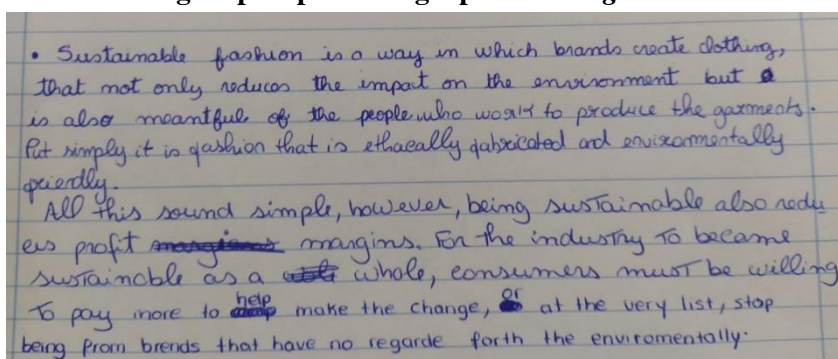 • Sustainable fashion is a way in which brands create clothing,
that not only reduces the impact on the environment but
is also meantful of the people who work to produce the garments.
Put simply it is fashion that is ethaeally fabricated and envirormentally
friendly.
All this sound simple, however, being sustainable also redu
ces profit margins. For the industry to became
sustainable as a whole, consumers must be willing
to pay more to help make the change, or at the very list, stop
being from brends that have no regarde forth the enviromentally.